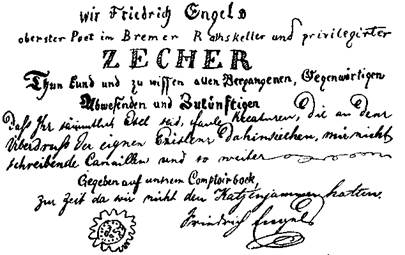 Wir Friedrich Engels
oberster Poet im Bremer Rathskeller und privilegirter
ZECHER
Thun kund und zu wissen allen Vergangenen, Gegenwärtigen
Abwesenden und Zukünftigen
Daß Ihr sämmtlich Esel seid, faule Kreaturen, die an dem
Ueberdruß der eignen Existenz dahinsiechen, mir nicht
schreibende Canaillen und so weiter
Gegeben auf unsrem Comptoirbock
zur Zeit da wir nicht den Katzenjammer hatten.
Friedrich Engels